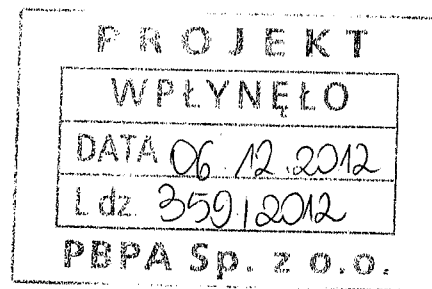 PROJEKT
WPŁYNĘŁO
DATA 06.12.2012
L.dz. 359/2012
PBPA Sp. z o.o.